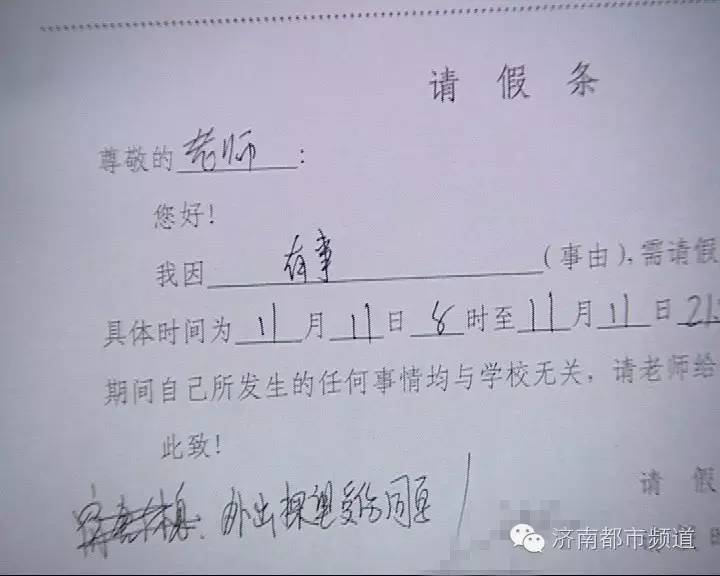 请 假 条
尊敬的老师:
您好!
我因 有事 (事由),需请假
具体时间为 11 月 11 日 8 时至 11 月 11 日 21
期间自己所发生的任何事情均与学校无关,请老师给
此致!
外出探望受伤同
请 假
济南都市频道